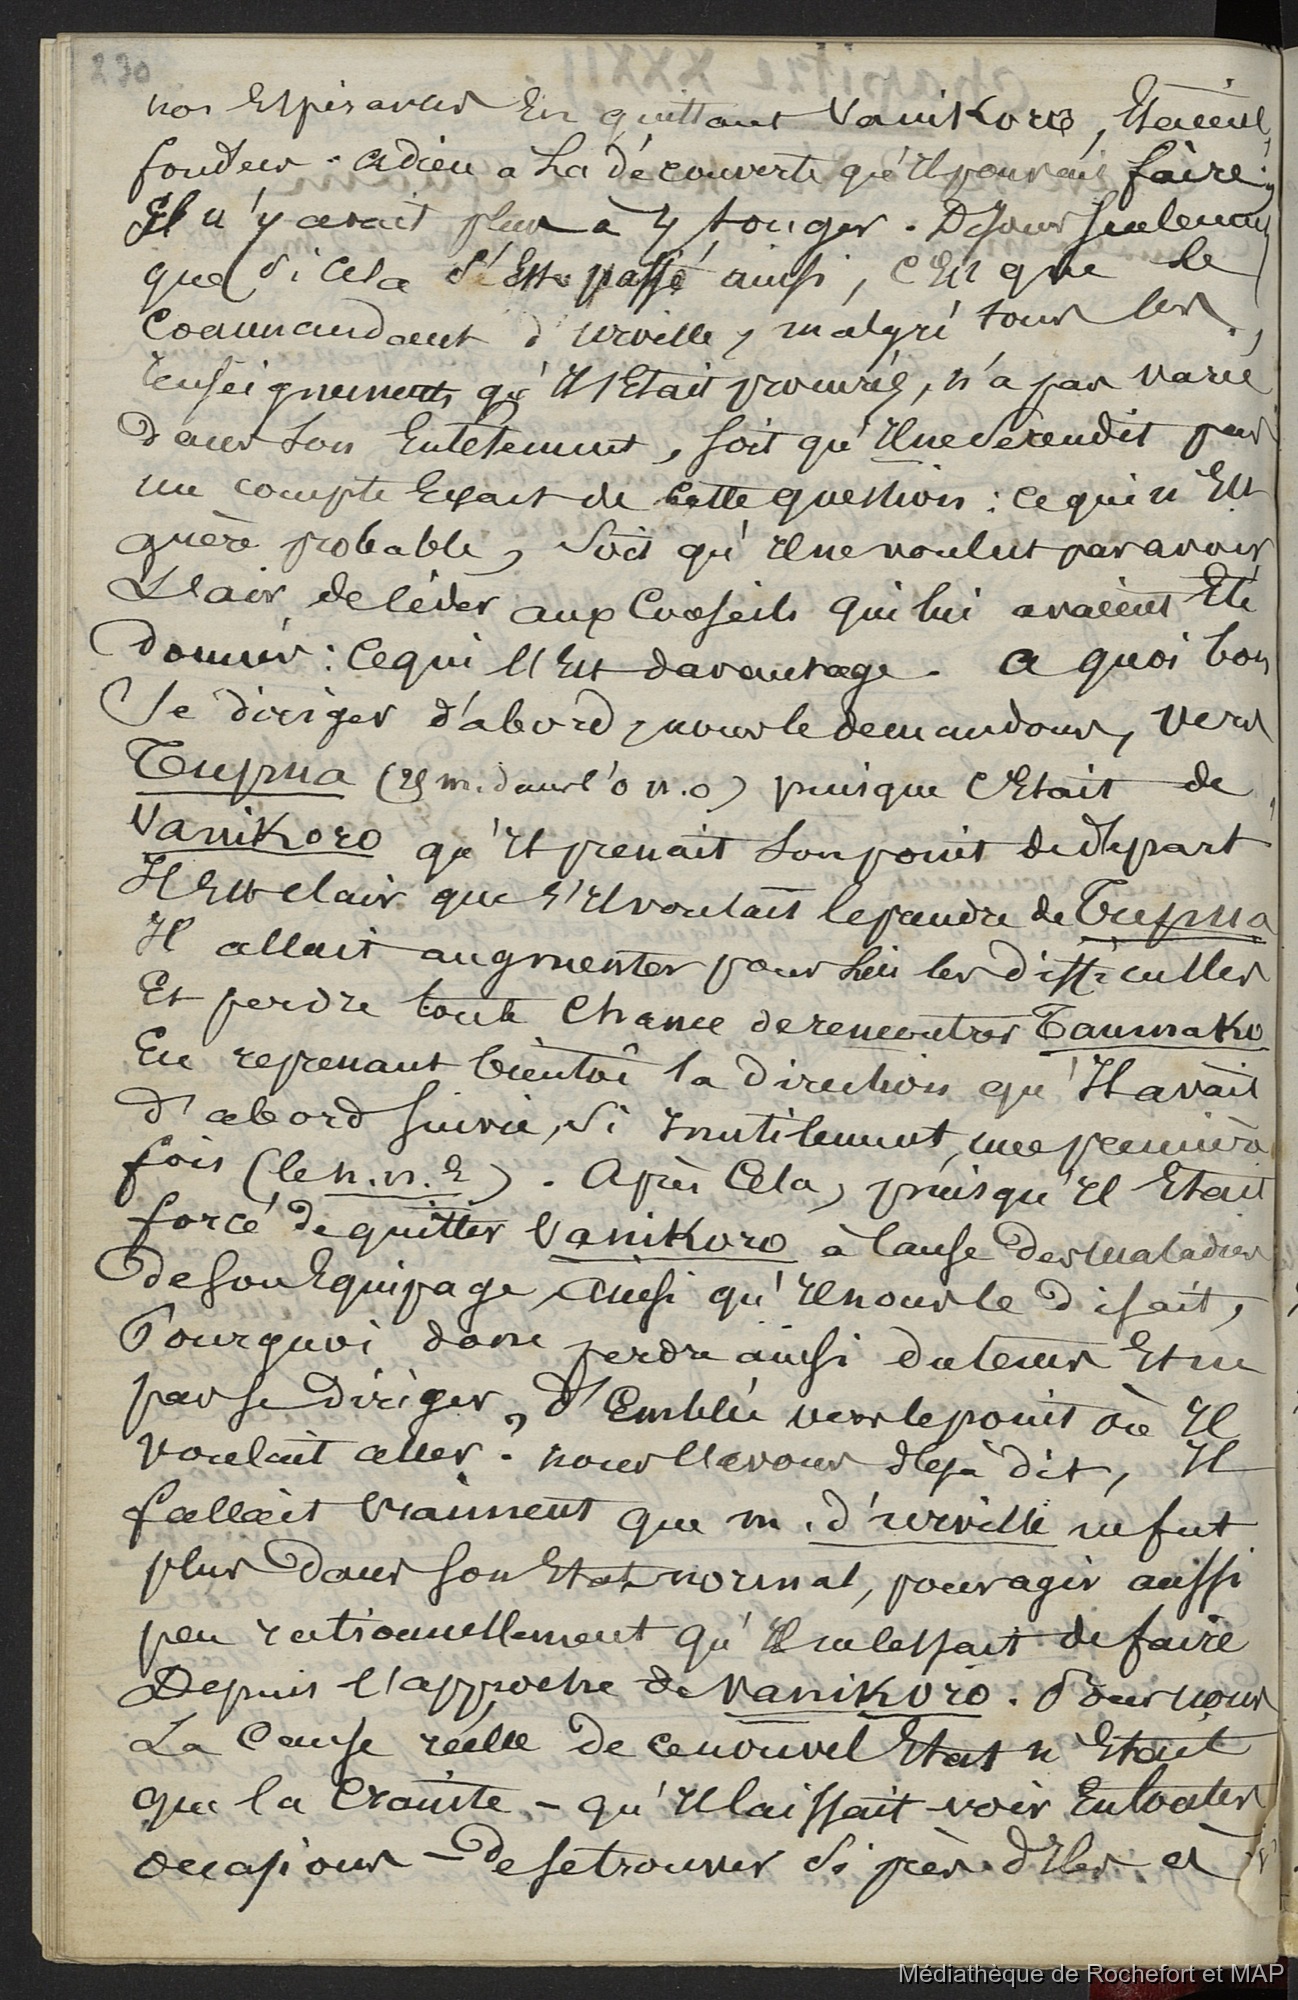 230
nos Espérances En quittant Vanikoro, Etaient
fondées. adieu à La découverte qu'Il pouvait faire;
Il n'y avait plus à y songer. Disons seulement
que si cela s'Est passé ainsi, c'Est que le
Commandant d'urville, malgré tous les
renseignements qu'Il s'Etait procurés, n'a pas varié
dans son Entêtement, soit qu'Il ne se rendit pas
un compte Exact de Cette question : ce qui n'Est
guère probable, soit qu'Il ne voulut pas avoir
L'air de céder aux Conseils qui lui avaient Eté
donnés : Ce qui l'Est davantage. a quoi bon
se diriger d'abord, nous le demandons, vers
Tupua (25 m. dans l'o n.o) puisque C'Etait de
Vanikoro qu'Il prenait son point de départ
Il Est clair que s'Il voulait dépendre de Tupua
Il allait augmenter pour Lui les difficultés
Et perdre toute Chance de rencontrer Taumako
En reprenant bientôt la direction qu'Il avait
d'abord suivie, si Inutilement, une première
fois (le n.n.E). Après Cela, puisqu'Il Etait
forcé de quitter Vanikoro à Cause des maladies
de son Equipage, ainsi qu'Il nous le disait,
Pourquoi donc perdre ainsi du tems Et ne
pas se diriger, d'Emblée vers le point où Il
voulait aller. nous l'avons déjà dit, Il
fallait Vraiment que m. d'urville ne fut
plus dans son Etat normal, pour agir aussi
peu rationnellement qu'Il ne cessait de faire
Depuis l'approche de Vanikoro. Pour nous
La Cause réelle de ce nouvel Etat n'Etait
que la Crainte - qu'Il laissait voir En toutes
occasions - De se trouver si près d'Iles et
Médiathèque de Rochefort et MAP